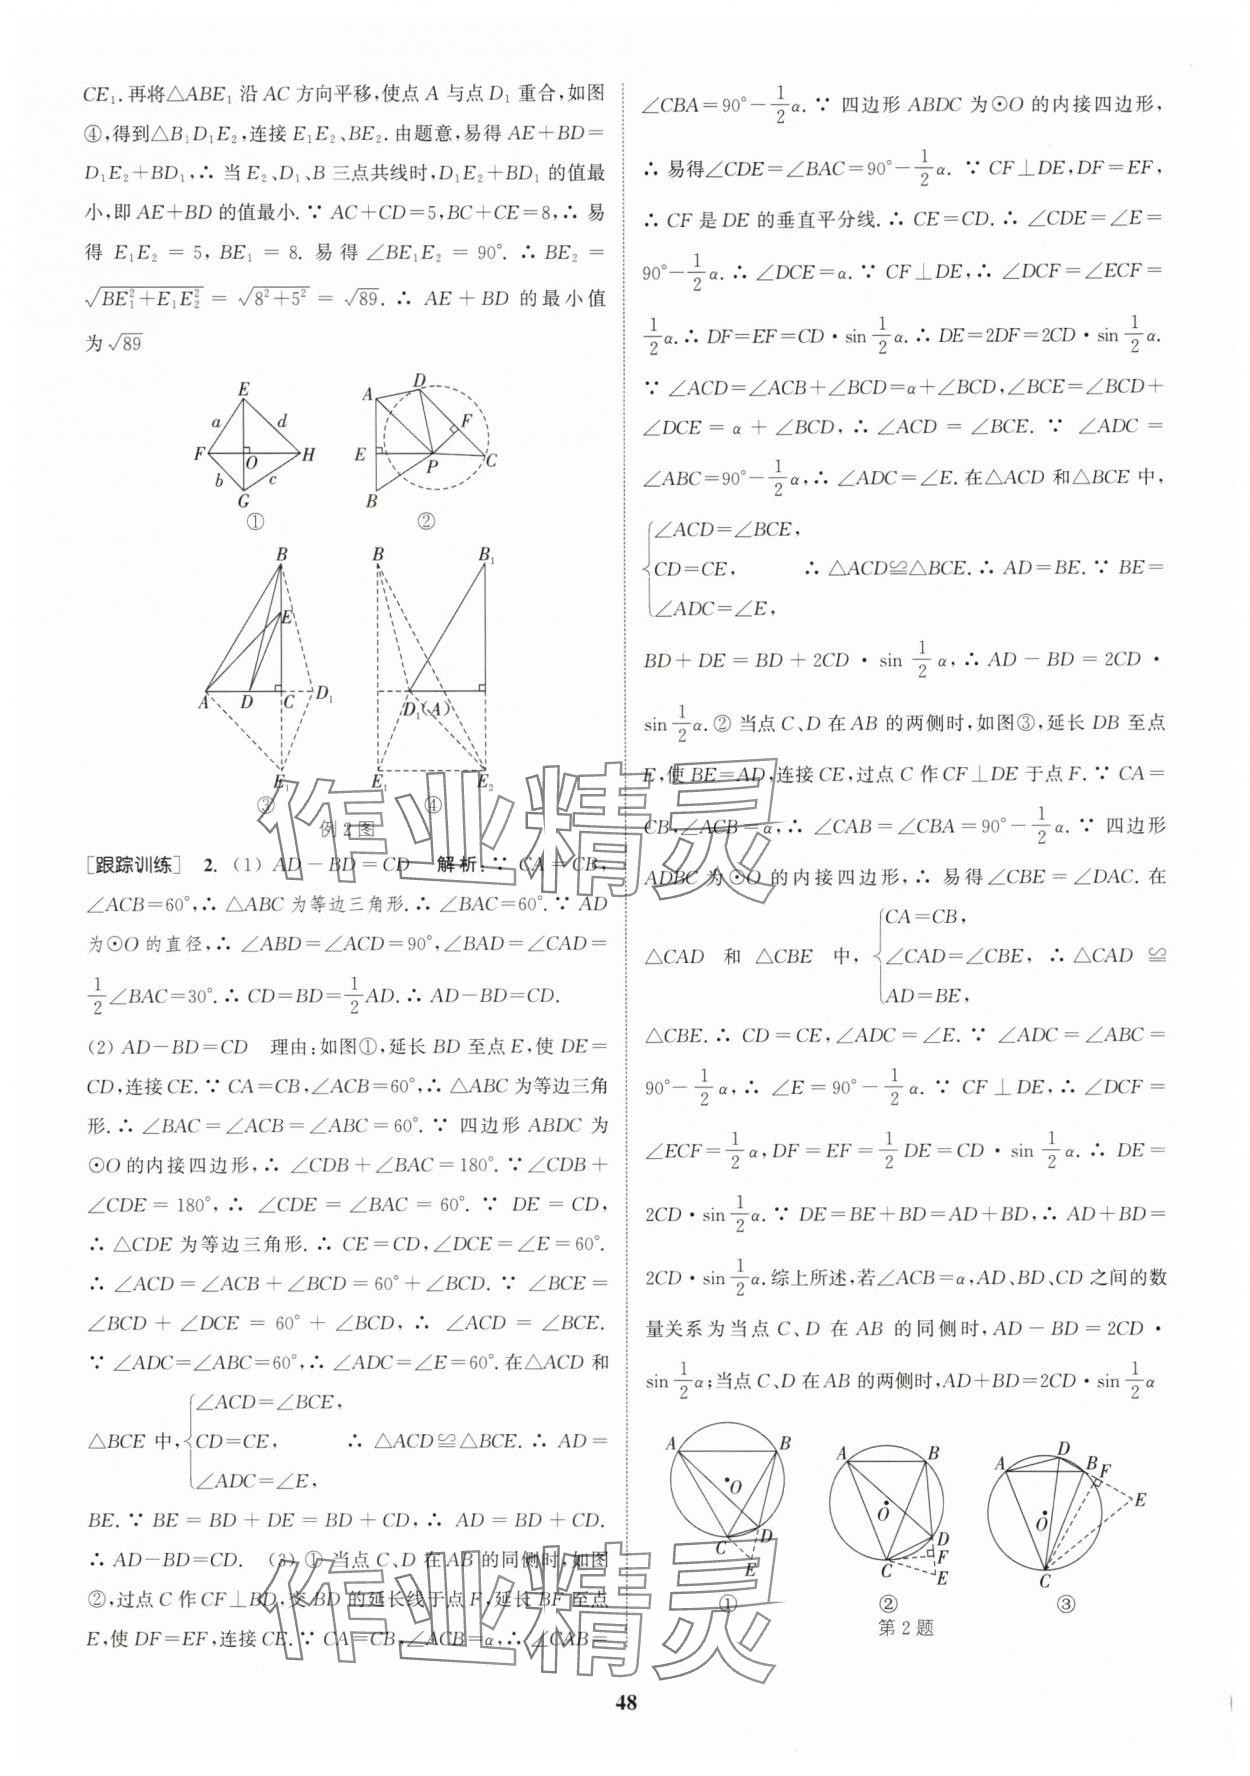 CE₁.再将△ABE₁沿AC方向平移,使点A与点D₁重合,如图
④,得到△B₁D₁E₂,连接E₁E₂、BE₂.由题意,易得AE+BD=
D₁E₂+BD₁,∴ 当E₂、D₁、B三点共线时,D₁E₂+BD₁的值最
小,即AE+BD的值最小.∵ AC+CD=5,BC+CE=8,∴ 易
得 E₁E₂ = 5, BE₁ = 8. 易得 ∠BE₁E₂ = 90°. ∴ BE₂ =
√(BE₁²+E₁E₂²) = √(8²+5²) = √89. ∴ AE + BD 的最小值
为√89
E a d F O H b c G ①
A D F E P C B ②
B E A D C D₁ E₁ ③
B B₁ D₁(A) E₁ E₂ ④
例2图
[跟踪训练] 2. (1) AD-BD=CD 解析:∵ CA=CB,
∠ACB=60°,∴ △ABC为等边三角形.∴ ∠BAC=60°.∵ AD
为⊙O的直径,∴ ∠ABD=∠ACD=90°,∠BAD=∠CAD=
1/2∠BAC=30°.∴ CD=BD=1/2AD.∴ AD-BD=CD.
(2) AD-BD=CD 理由:如图①,延长BD至点E,使DE=
CD,连接CE.∵ CA=CB,∠ACB=60°,∴ △ABC为等边三角
形.∴ ∠BAC=∠ACB=∠ABC=60°.∵ 四边形ABDC为
⊙O的内接四边形,∴ ∠CDB+∠BAC=180°.∵ ∠CDB+
∠CDE = 180°, ∴ ∠CDE = ∠BAC = 60°. ∵ DE = CD,
∴ △CDE为等边三角形.∴ CE=CD,∠DCE=∠E=60°.
∴ ∠ACD=∠ACB+∠BCD=60°+∠BCD. ∵ ∠BCE=
∠BCD + ∠DCE = 60° + ∠BCD, ∴ ∠ACD = ∠BCE.
∵ ∠ADC=∠ABC=60°,∴ ∠ADC=∠E=60°.在△ACD和
△BCE中,{∠ACD=∠BCE, CD=CE, ∠ADC=∠E, ∴ △ACD≌△BCE.∴ AD=
BE. ∵ BE = BD + DE = BD + CD, ∴ AD = BD + CD.
∴ AD-BD=CD. (3) ① 当点C、D在AB的同侧时,如图
②,过点C作CF⊥BD,交BD的延长线于点F,延长BF至点
E,使DF=EF,连接CE.∵ CA=CB,∠ACB=α,∴ ∠CAB=
∠CBA=90°-1/2α.∵ 四边形ABDC为⊙O的内接四边形,
∴ 易得∠CDE=∠BAC=90°-1/2α. ∵ CF⊥DE,DF=EF,
∴ CF是DE的垂直平分线.∴ CE=CD.∴ ∠CDE=∠E=
90°-1/2α.∴ ∠DCE=α.∵ CF⊥DE,∴ ∠DCF=∠ECF=
1/2α.∴ DF=EF=CD·sin 1/2α.∴ DE=2DF=2CD·sin 1/2α.
∵ ∠ACD=∠ACB+∠BCD=α+∠BCD,∠BCE=∠BCD+
∠DCE = α + ∠BCD, ∴ ∠ACD = ∠BCE. ∵ ∠ADC =
∠ABC=90°-1/2α,∴ ∠ADC=∠E.在△ACD和△BCE中,
{∠ACD=∠BCE, CD=CE, ∠ADC=∠E, ∴ △ACD≌△BCE.∴ AD=BE.∵ BE=
BD+DE=BD+2CD·sin 1/2α,∴ AD-BD=2CD·
sin 1/2α.② 当点C、D在AB的两侧时,如图③,延长DB至点
E,使BE=AD,连接CE,过点C作CF⊥DE于点F.∵ CA=
CB,∠ACB=α,∴ ∠CAB=∠CBA=90°-1/2α.∵ 四边形
ADBC为⊙O的内接四边形,∴ 易得∠CBE=∠DAC.在
△CAD 和 △CBE 中,{CA=CB, ∠CAD=∠CBE, AD=BE, ∴ △CAD ≌
△CBE.∴ CD=CE,∠ADC=∠E.∵ ∠ADC=∠ABC=
90°-1/2α,∴ ∠E=90°-1/2α.∵ CF⊥DE,∴ ∠DCF=
∠ECF=1/2α,DF=EF=1/2DE=CD·sin 1/2α.∴ DE=
2CD·sin 1/2α.∵ DE=BE+BD=AD+BD,∴ AD+BD=
2CD·sin 1/2α.综上所述,若∠ACB=α,AD、BD、CD之间的数
量关系为当点C、D在AB的同侧时,AD-BD=2CD·
sin 1/2α;当点C、D在AB的两侧时,AD+BD=2CD·sin 1/2α
A B O C D E ①
A B O D F C E ②
A D B F E O C ③
第2题
作业精灵
作业精灵
48